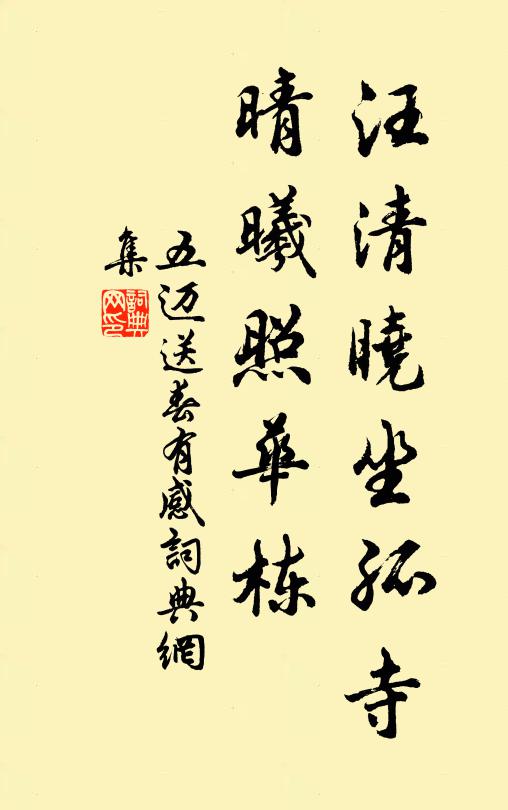 汪清曉坐孤寺
晴曦照華栋
五迈送春有感詞典網
集
詞典
网印